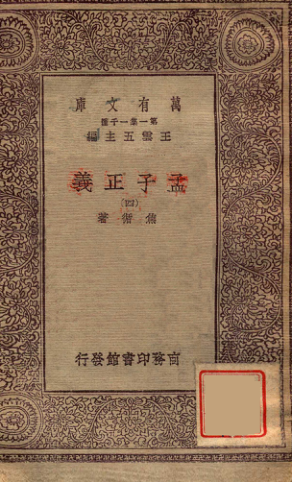 萬有文庫
第一集一千種
王雲五主編
孟子正義
(四)
焦循著
商務印書館發行